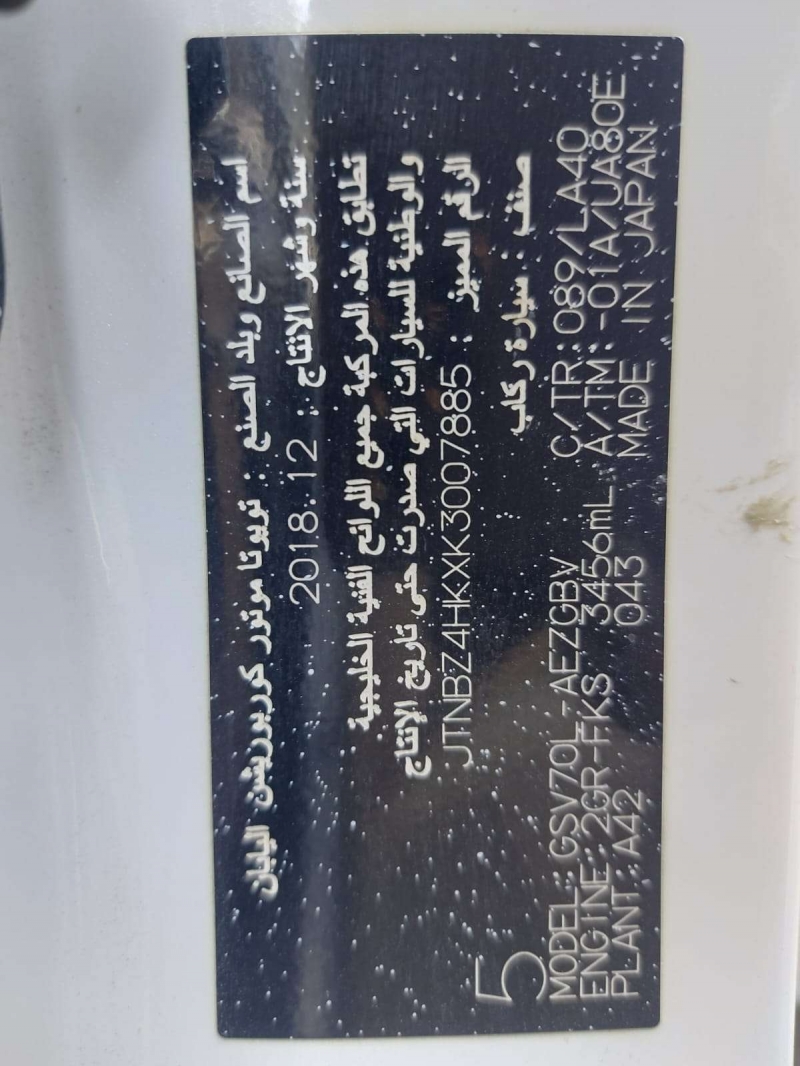 اسم الصانع وبلد الصنع : تويوتا موتور كوربوريشن اليابان
سنة وشهر الانتاج : 2018.12
تطابق هذه المركبة جميع اللوائح الفنية الخليجية
والوطنية للسيارات التي صدرت حتى تاريخ الإنتاج
الرقم المميز : JTNBZ4HKXK3007885
صنف : سيارة ركاب
5
MODEL:GSV70L-AEZGBV C/TR:089/LA40
ENGINE:2GR-FKS 3456mL A/TM:-01A/UA80E
PLANT:A42 043 MADE IN JAPAN